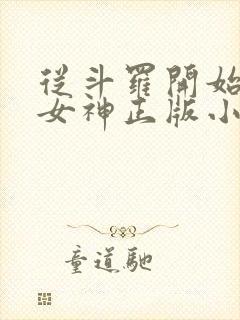 從斗羅開始
女神正版小
童道馳